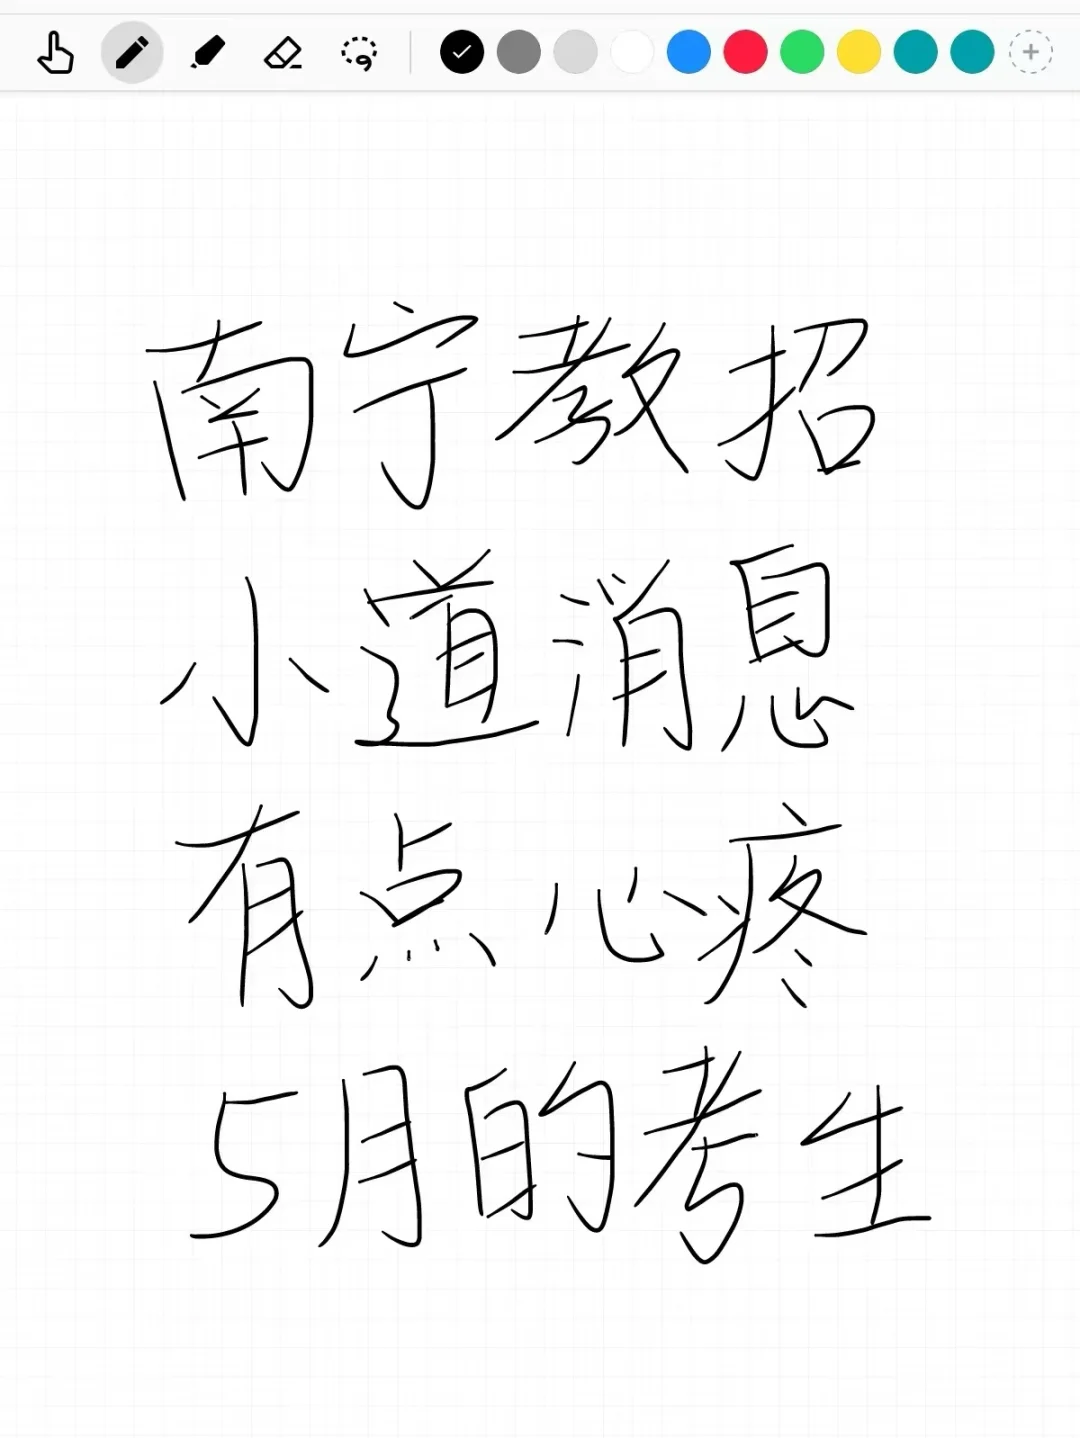 南宁教招
小道消息
有点心疼
5月的考生